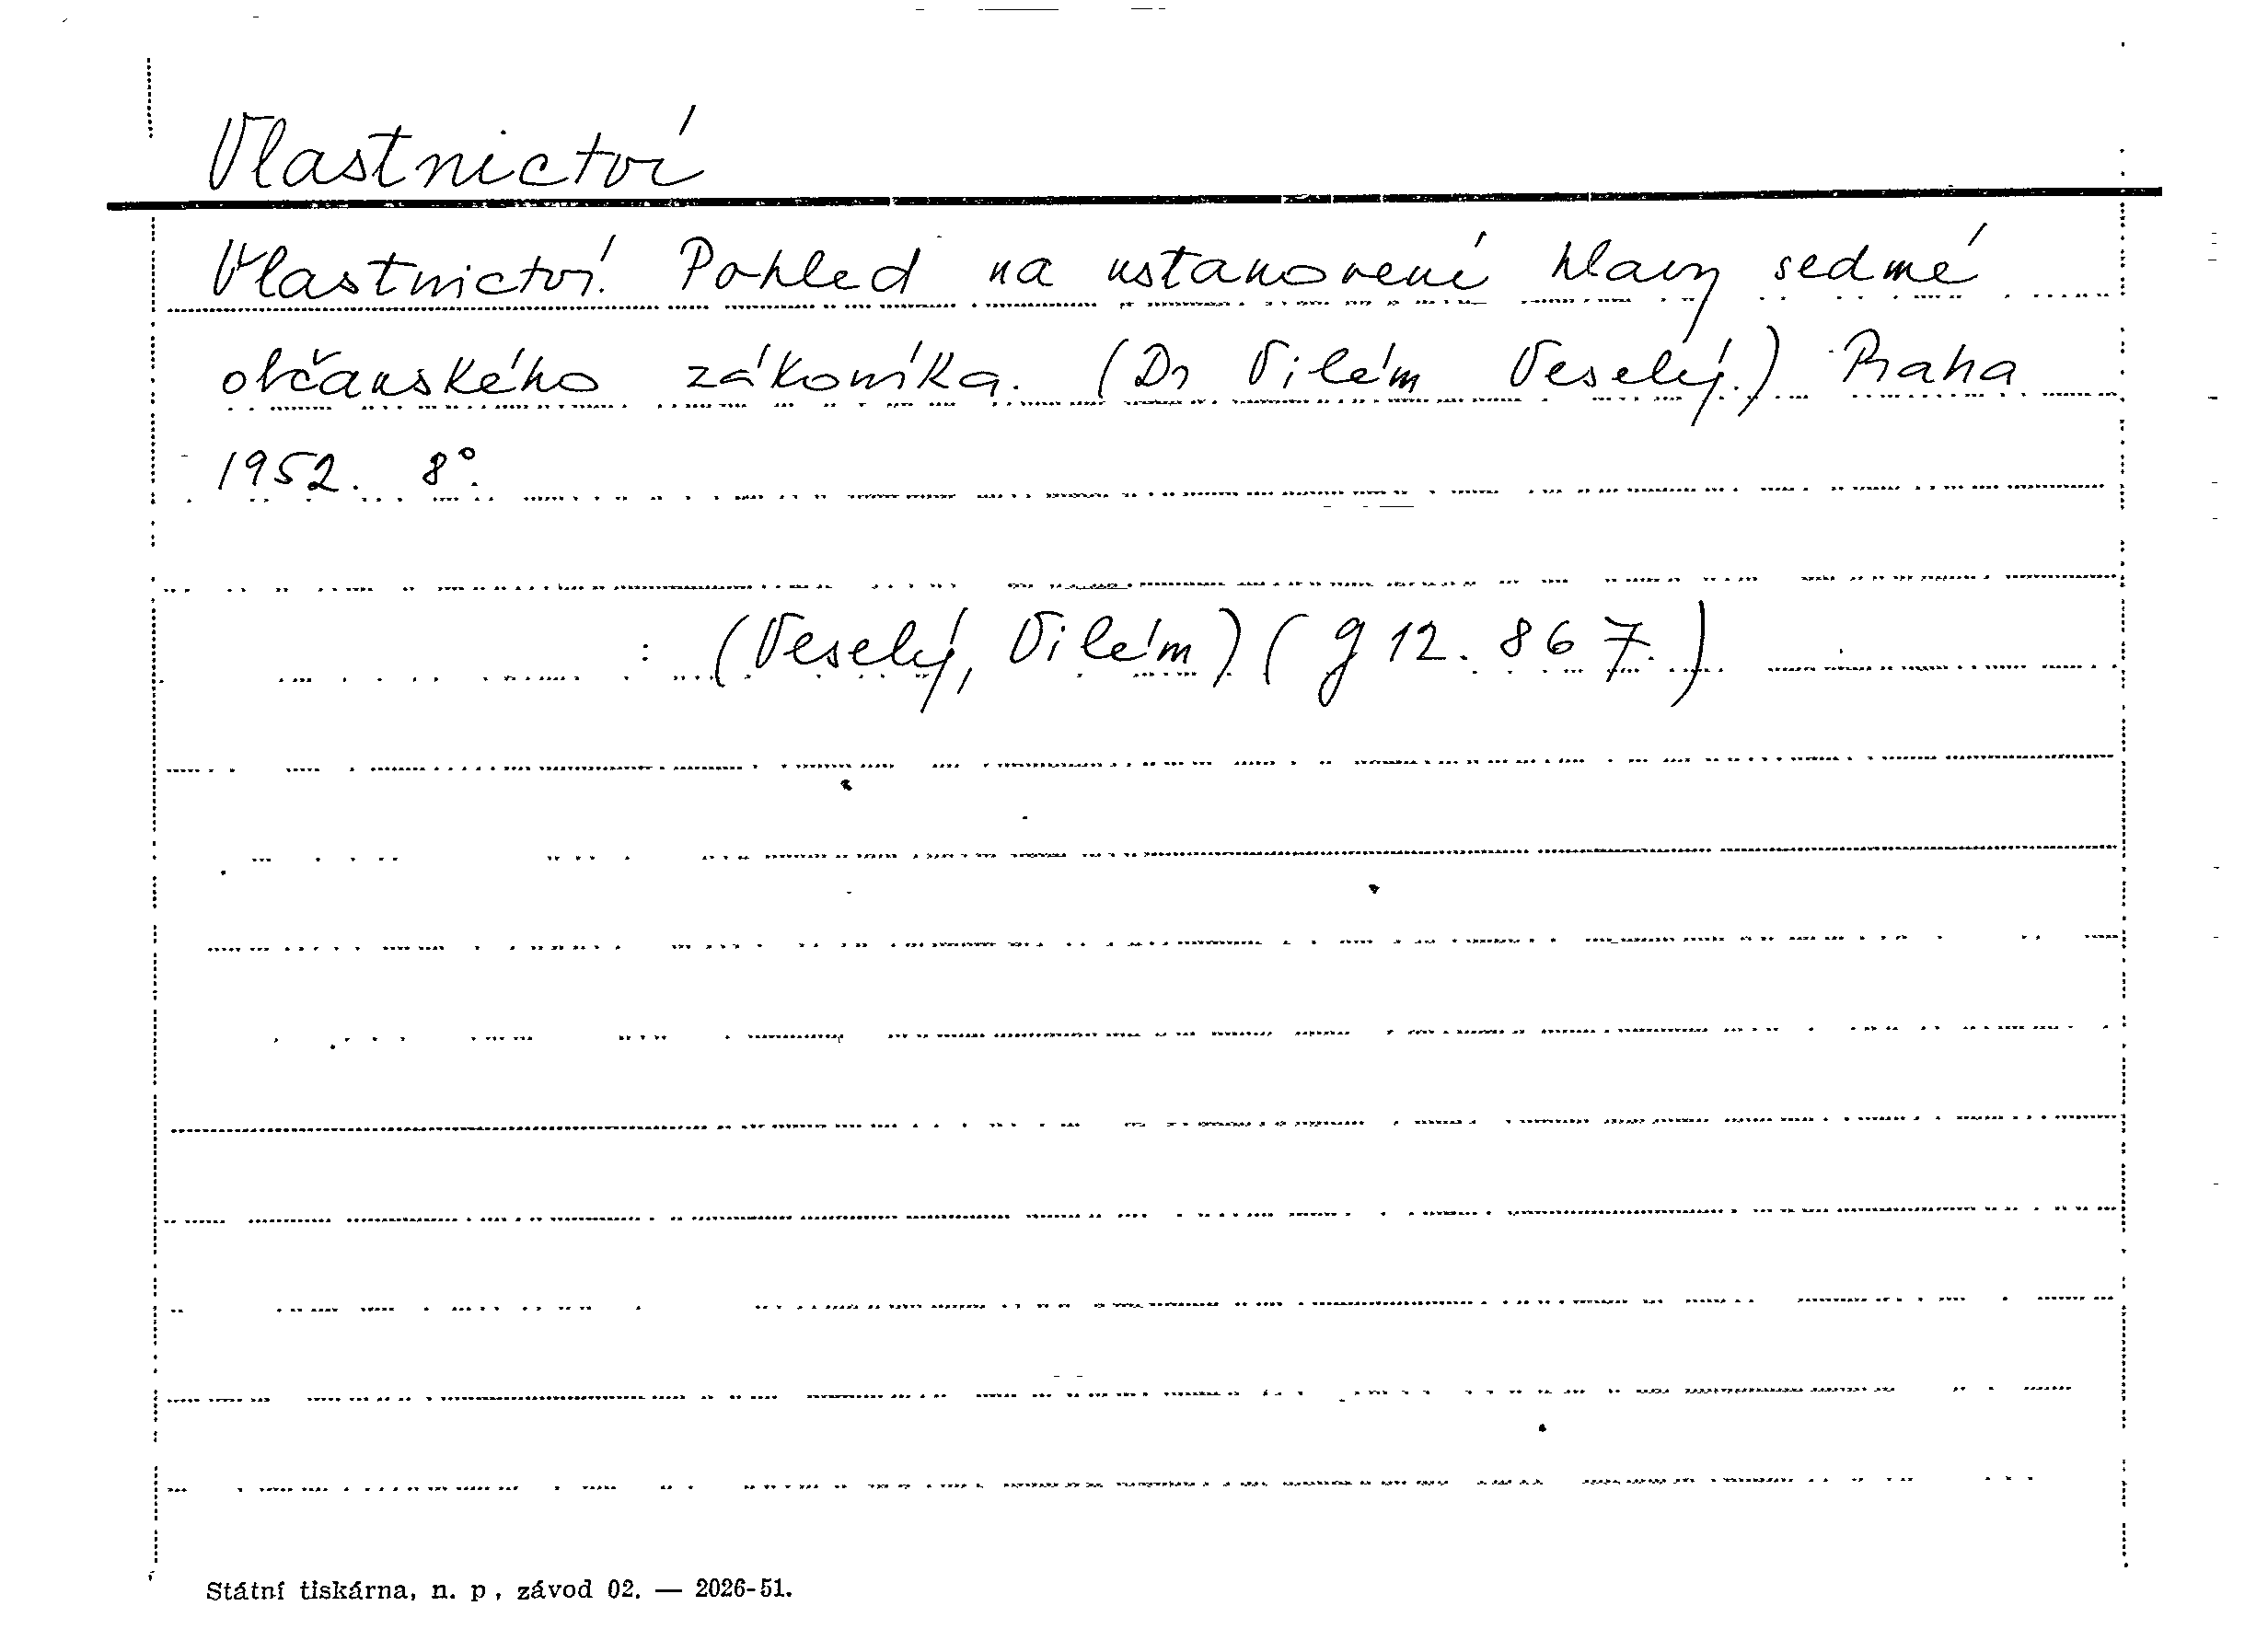 Vlastnictví
Vlastnictví. Pohled na ustanovení hlavy sedmé
občanského zákoníka. (Dr Vilém Veselý.) Praha
1952. 8°.
: (Veselý, Vilém) (g 12. 867.)
Státní tiskárna, n. p., závod 02. — 2026-51.